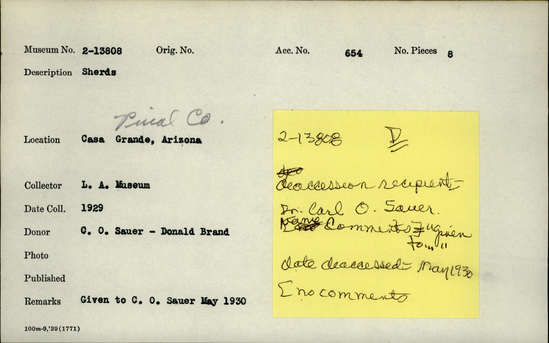 Museum No. 2-13808 Orig. No. Acc. No. 654 No. Pieces 8
Description Sherds
Pinal Co.
Location Casa Grande, Arizona
Collector L. A. Museum
Date Coll. 1929
Donor C. O. Sauer - Donald Brand
Photo
Published
Remarks Given to C. O. Sauer May 1930
100m-9,'29(1771)
2-13808 D
deaccession recipient-
Dr. Carl O. Sauer.
Comments "given
to..."
date deaccessed- May 1930
no comments